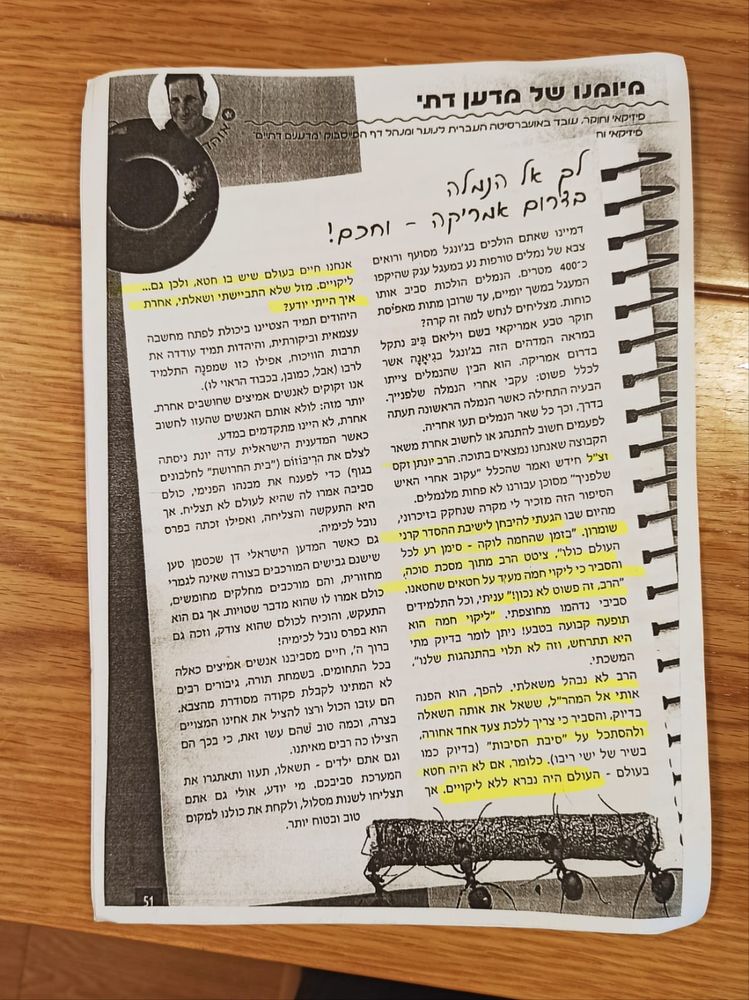 מיומנו של מדען דתי
פיזיקאי וחוקר. עובד באוניברסיטה העברית לנוער ומנהל דף הפייסבוק "מדענים דתיים"
פיזיקאי וח
אוהד
לך אל הנמלה
בדרום אמריקה - וחכם!
דמיינו שאתם הולכים בג'ונגל מסועף ורואים
צבא של נמלים טורפות נע במעגל ענק שהיקפו
כ־400 מטרים. הנמלים הולכות סביב אותו
המעגל במשך יומיים, עד שרובן מתות מאפיסת
כוחות. מצליחים לנחש למה זה קרה?
חוקר טבע אמריקאי בשם ויליאם בִּיבּ נתקל
במראה המדהים הזה בג'ונגל בגִיאָנָה אשר
בדרום אמריקה. הוא הבין שהנמלים צייתו
לכלל פשוט: עקבי אחרי הנמלה שלפנייך.
הבעיה התחילה כאשר הנמלה הראשונה תעתה
בדרך, וכך כל שאר הנמלים תעו אחריה.
לפעמים חשוב להתנהג או לחשוב אחרת משאר
הקבוצה שאנחנו נמצאים בתוכה. הרב יונתן זקס
זצ"ל חידש ואמר שהכלל "עקוב אחרי האיש
שלפניך" מסוכן עבורנו לא פחות מלנמלים.
הסיפור הזה מזכיר לי מקרה שנחקק בזיכרוני,
מהיום שבו הגעתי להיבחן לישיבת ההסדר קרני
שומרון. "בזמן שהחמה לוקה - סימן רע לכל
העולם כולו", ציטט הרב מתוך מסכת סוכה,
והסביר כי ליקוי חמה מעיד על חטאים שחטאנו.
"הרב, זה פשוט לא נכון!" עניתי, וכל התלמידים
סביבי נדהמו מחוצפתי. "ליקוי חמה הוא
תופעה קבועה בטבע! ניתן לומר בדיוק מתי
היא תתרחש, וזה לא תלוי בהתנהגות שלנו",
המשכתי.
הרב לא נבהל משאלתי. להפך, הוא הפנה
אותי אל המהר"ל, ששאל את אותה השאלה
בדיוק, והסביר כי צריך ללכת צעד אחד אחורה,
ולהסתכל על "סיבת הסיבות" (בדיוק כמו
בשיר של ישי ריבו). כלומר, אם לא היה חטא
בעולם - העולם היה נברא ללא ליקויים. אך
אנחנו חיים בעולם שיש בו חטא, ולכן גם...
ליקויים. מזל שלא התביישתי ושאלתי, אחרת
איך הייתי יודע?
היהודים תמיד הצטיינו ביכולת לפתח מחשבה
עצמאית וביקורתית, והיהדות תמיד עודדה את
תרבות הוויכוח, אפילו כזו שמפנה התלמיד
לרבו (אבל, כמובן, בכבוד הראוי לו).
אנו זקוקים לאנשים אמיצים שחושבים אחרת.
יותר מזה: לולא אותם האנשים שהעזו לחשוב
אחרת, לא היינו מתקדמים במדע.
כאשר המדענית הישראלית עדה יונת ניסתה
לצלם את הריבוזום ("בית החרושת" לחלבונים
בגוף) כדי לפענח את מבנהו הפנימי, כולם
סביבה אמרו לה שהיא לעולם לא תצליח. אך
היא התעקשה והצליחה, ואפילו זכתה בפרס
נובל לכימיה.
גם כאשר המדען הישראלי דן שכטמן טען
שישנם גבישים המורכבים בצורה שאינה לגמרי
מחזורית, והם מורכבים מחלקים מחומשים,
כולם אמרו לו שהוא מדבר שטויות. אך גם הוא
התעקש, והוכיח לכולם שהוא צודק, וזכה גם
הוא בפרס נובל לכימיה!
ברוך ה', חיים מסביבנו אנשים אמיצים כאלה
בכל התחומים. בשמחת תורה, גיבורים רבים
לא המתינו לקבלת פקודה מסודרת מהצבא.
הם עזבו הכול ורצו להציל את אחינו המצויים
בצרה, וכמה טוב שהם עשו זאת, כי בכך הם
הצילו כה רבים מאיתנו.
וגם אתם ילדים - תשאלו, תעזו ותאתגרו את
המערכת סביבכם. מי יודע, אולי גם אתם
תצליחו לשנות מסלול, ולקחת את כולנו למקום
טוב ובטוח יותר.
51